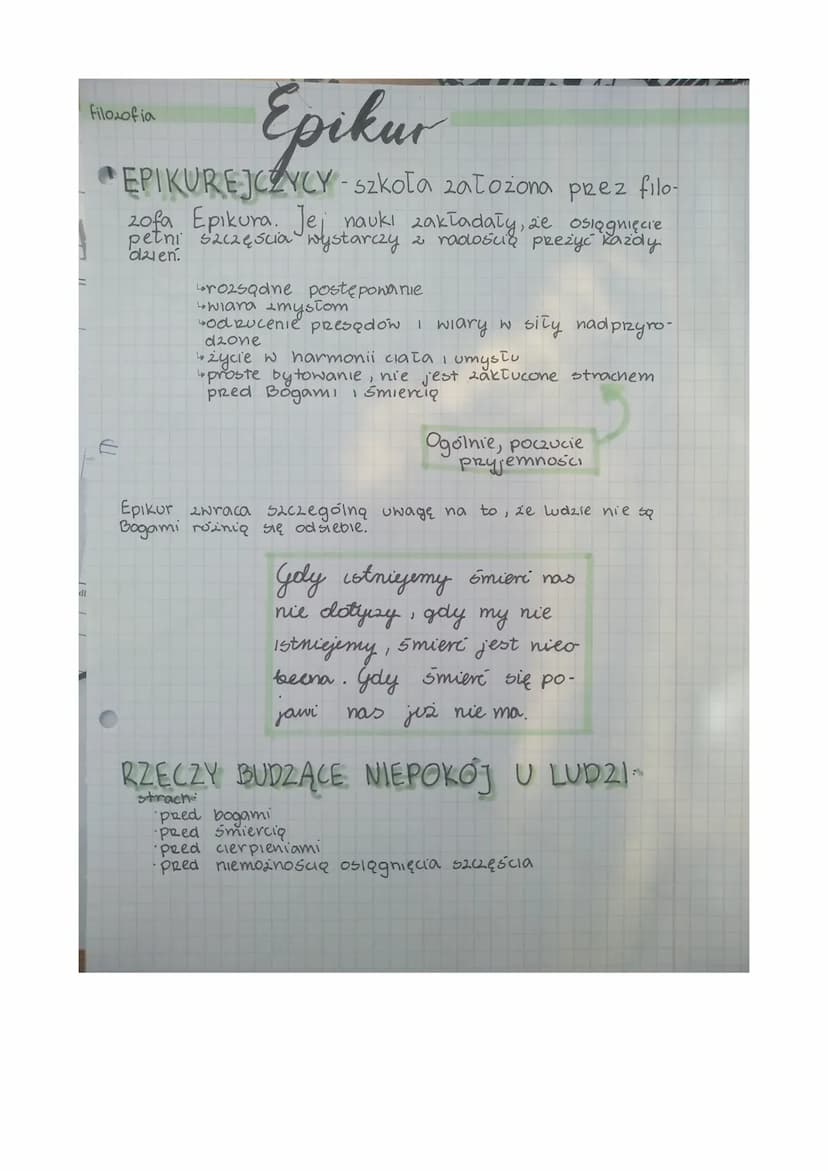 filozofia
Epikur
EPIKUREJCZYCY - szkoła założona przez filo-
zofa Epikura. Jej nauki zakładały, że osiągnięcie
pełni szczęścia wystarczy z radością przeżyć każdy
dzień.
↳rozsądne postępowanie
↳wiara zmysłom
↳odrzucenie przesądów i wiary w siły nadprzyro-
dzone
↳życie w harmonii ciała i umysłu
↳proste bytowanie, nie jest zakłucone strachem
przed Bogami i śmiercią
Ogólnie, poczucie
przyjemności
Epikur zwraca szczególną uwagę na to, że ludzie nie są
Bogami różnią się od siebie.
Gdy istniejemy śmierć nas
nie dotyczy, gdy my nie
istniejemy, śmierć jest nieo-
becna. Gdy śmierć się po-
jawi nas już nie ma.
RZECZY BUDZĄCE NIEPOKÓJ U LUDZI:
strach:
·przed bogami
·przed śmiercią
·przed cierpieniami
·przed niemożnością osiągnięcia szczęścia